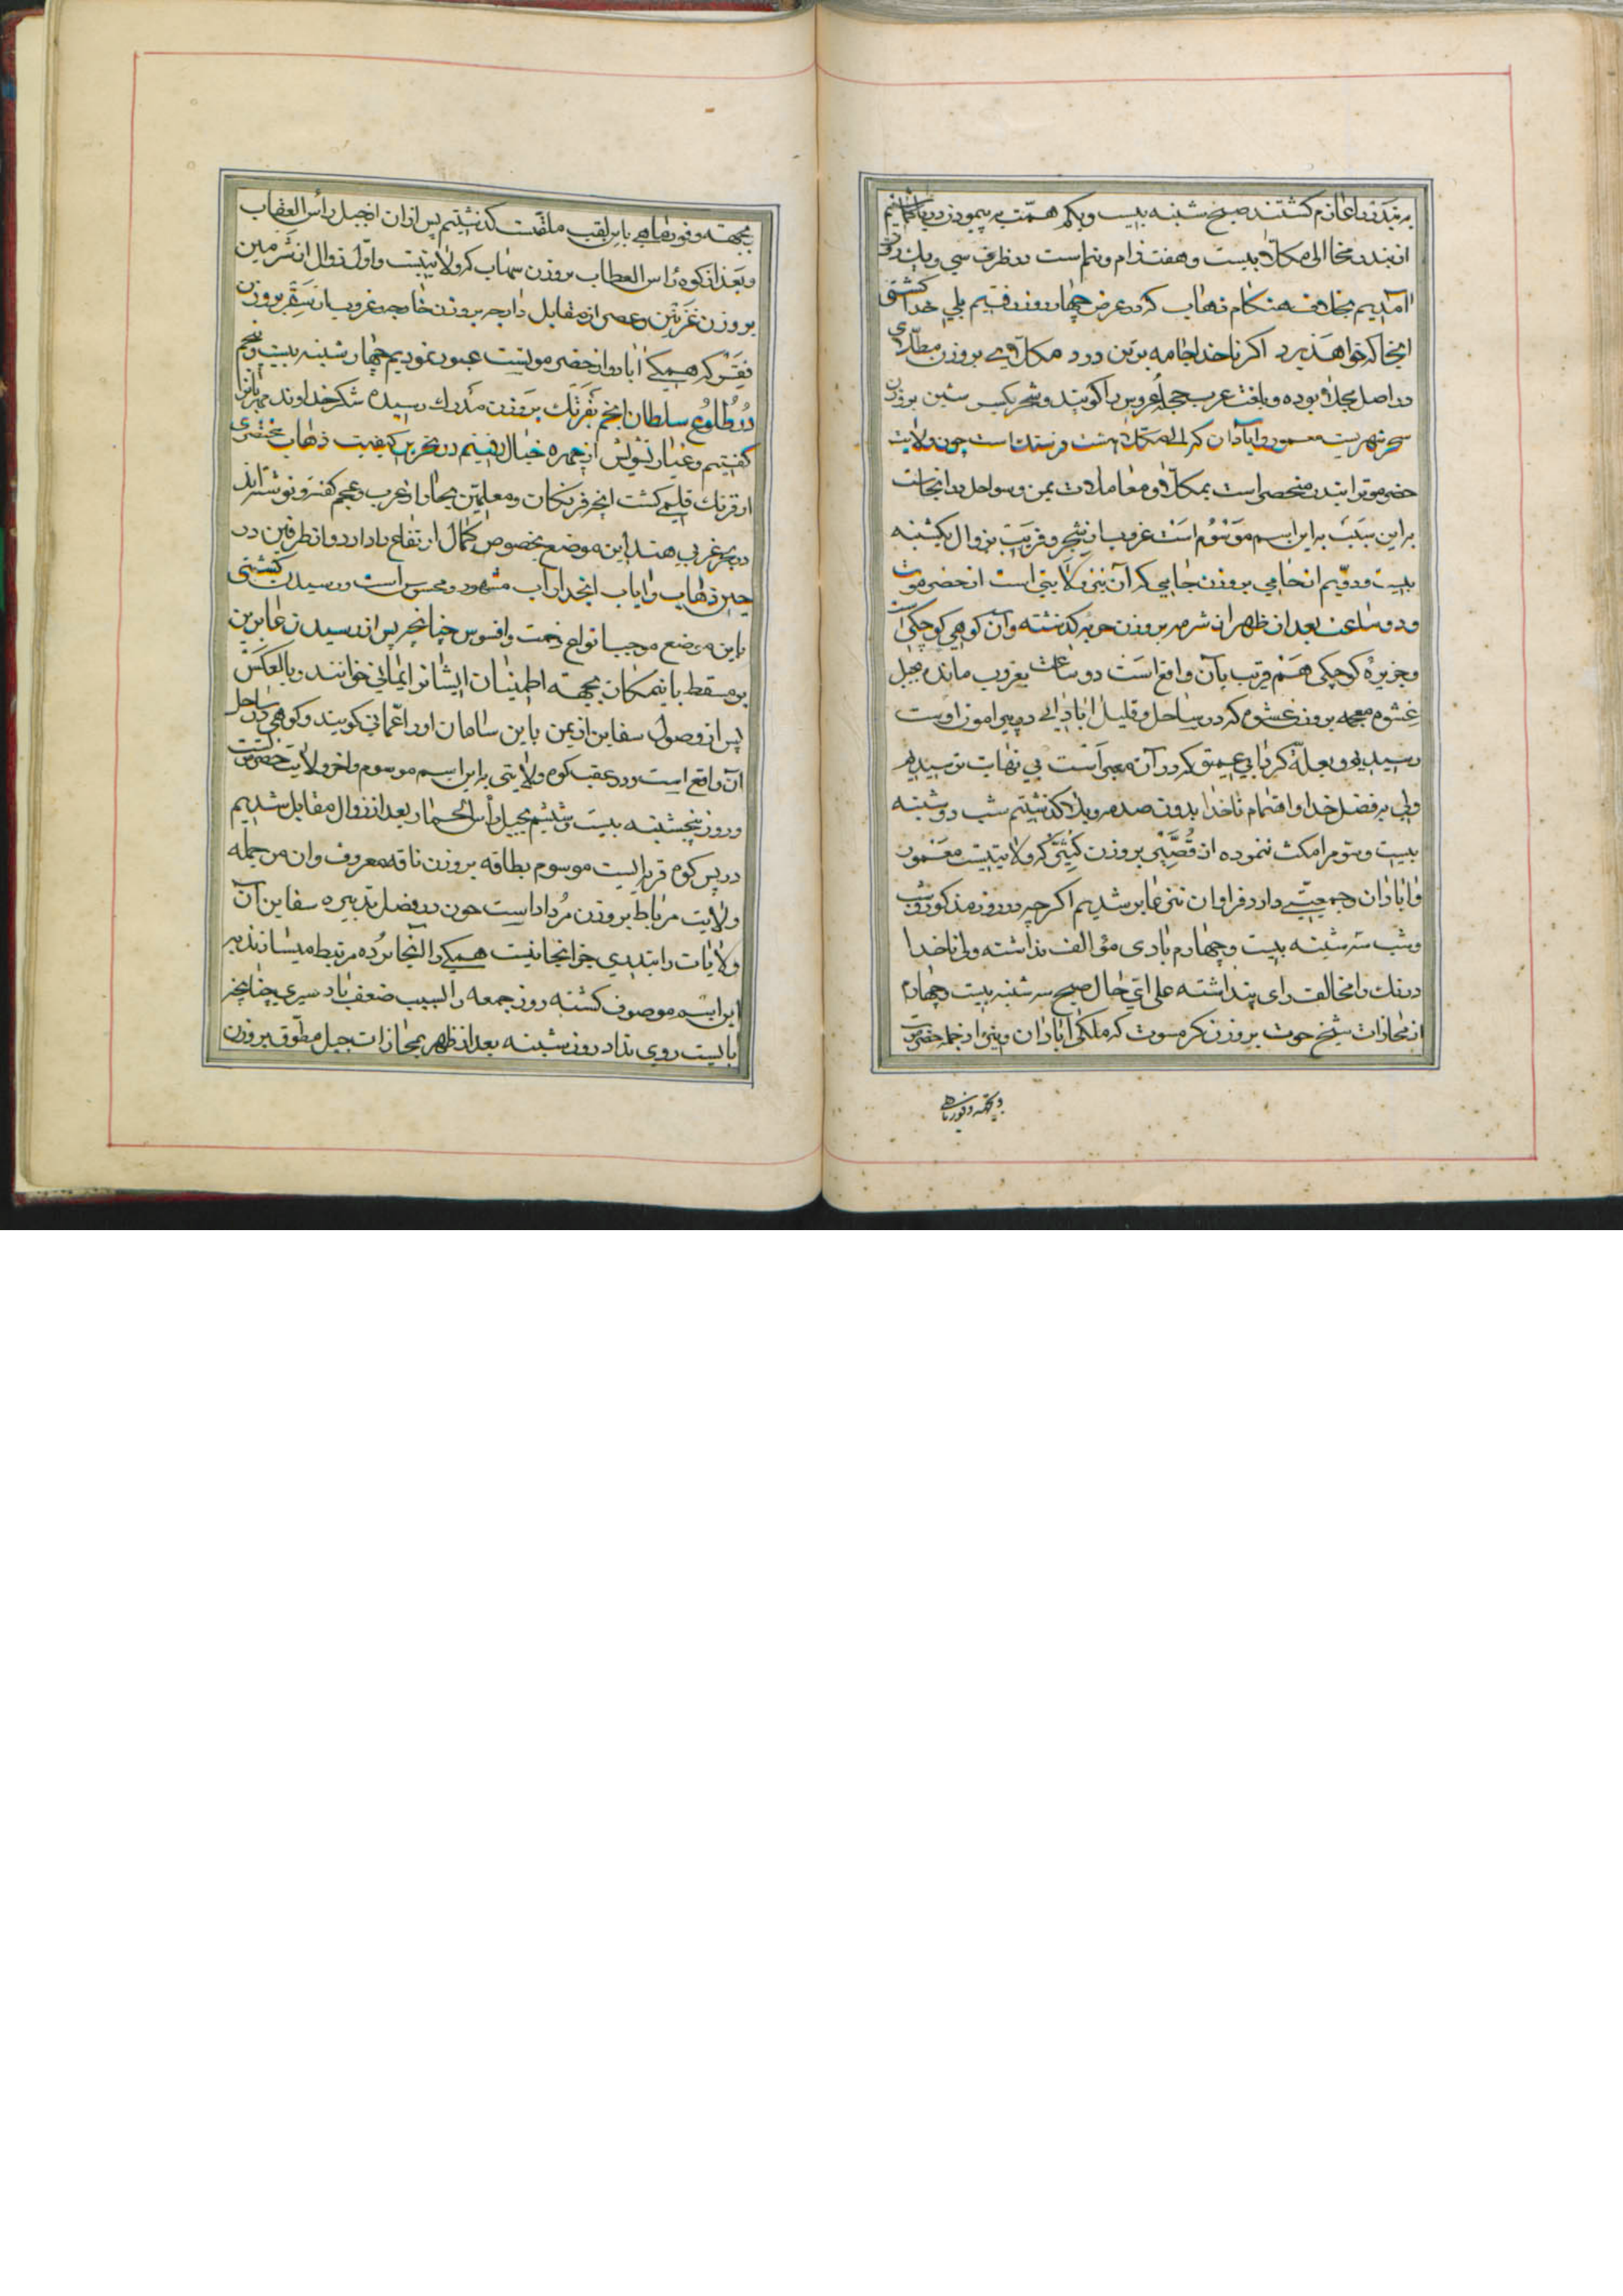 به بندر عازم کشتند صبح شنبه بیست ویکم همّت به پیمودن دریا
از بندر مخا الی مکلّا بیست و هفت زام ونیم است در ظرف سی ویک روز
آمدیم بخلاف هنکام ذهاب که در عرض چهار روز رفتیم بلی خدا کشتی
آنجا که خواهد برد اکر ناخدا جامه بر تن درد مکلّا بروزن مطلّای
در اصل بوده وبلغت عرب حجله عروس را کویند وشحر بکسر شین بروزن
سحر شهریست معمور وآبادان که الی مکلّا هشت فرسنک است چون ولایت
حضرموترا بندر منحصر است بمکلّا و معاملات یمن وسواحل در آنجاست
به این سبب به این اسم موسوم است غروب از شحر وقریب بزوال یکشنبه
بیست ودویم از حامی بروزن جامی که آن نیز ولایتی است از حضرموت
ودو ساعت بعد از ظهر از شرمه بروزن حربه کذشته وآن کوهی کوچکی است
وجزیرهٔ کوچکی هم قریب بآن واقع است دو ساعت بغروب مانده بجبل
غشوه معجمه بروزن عشوه که در ساحل وقلیل آبادانی در پیرامون اوست
رسیدیم وبعلّه کردابی عمیق که در آن معبر است بی نهایت ترسیدیم
ولی به فضل خدا واهتمام ناخدا بدون صدمه وبلا کذشتیم شب دوشنبه
بیست وسوم را مکث ننموده از قُصَیْر بروزن که ولایتیست معمور
وآبادان وجمعیّتی دارد فراوان نیز عابر شدیم اکر چه در روز مذکور
وشب سه شنبه بیست وچهارم بادی مؤالف نداشته ولی ناخدا
درنک را مخالف رای پنداشته علی ایّ حال صبح سه شنبه بیست وچهارم
از محاذات شیخ حوت بروزن که ملکی آبادان ونیز از جمله حضرموت
وبجهته وفور ماهی
بجهته وفور ماهی باین لقب ملقبّ است کذشتیم پس ازان از جبل رأس العقاب
وبعد از کوه رأس العطاب بروزن سهاب که ولایتیست واوّل زوال از ثرمین
بروزن غزنین وعصر از مقابل دارجه بروزن خارجه وغروب از سَقَر بروزن
که همیکی آبادو از حضرموتست عبور نمودیم چهار شنبه بیست وپنجم
در طلوع سلطان انجم بفرتک بروزن مدرک رسیده شکر خداوند مهربانرا
کفتیم وغبار تشویش از چهره خیال رفتیم در تحریر کیفیت ذهاب مختصری
از فرتک قلمی کشت آنچه فرنکان ومعلّمین بحار از عرب وعجم کفته ونوشته اند
در بحر غربی هند این موضع بخصوص کمال ارتفاع را دارد واز طرفین در
حین ذهاب وایاب انحدار آب مشهود ومحسوس است ورسیدن کشتی
باین موضع موجب انواع زحمت وافسوس چنانچه پس از رسیدن عابرین
بر مسقط باینمکان بجهته اطمینان ایشانرا ایمانی خوانند وبالعکس
پس از وصول سفاین از یمن باین سامان اورا عمانی کویند وکوهی در ساحل
آن واقع است ودر عقب کوه ولایتی به این اسم موسوم وآخر ولایت حضرموت است
وروز پنجشنبه بیست وششم بجبل رأس الحمار بعد از زوال مقابل شدیم
در پس کوه قریه ایست موسوم بطاقه بروزن ناقه معروف وآن من جمله
ولایت مرباط بروزن مُرداد است چون در فصل تدبیره سفاین آن
ولایات را بندری جز آنجا نیست همیکی را آنجا برُده مرتبط میسازند به
این اسم موصوف کشته روز جمعه را بسبب ضعف باد سیری چنانچه
بایست روی نداد روز شنبه بعد از ظهر بمحاذات جبل مطوّق بروزن